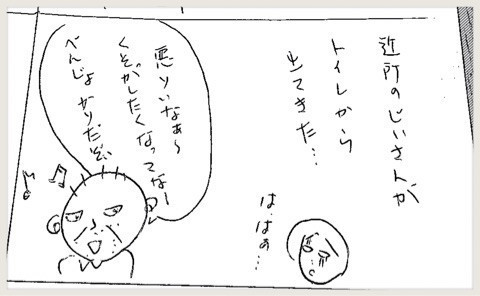 近所のじいさんが
トイレから
出てきた…
は、はぁ…
悪りいなぁ〜
くそがしたくなってなー
べんじょかりたぞい